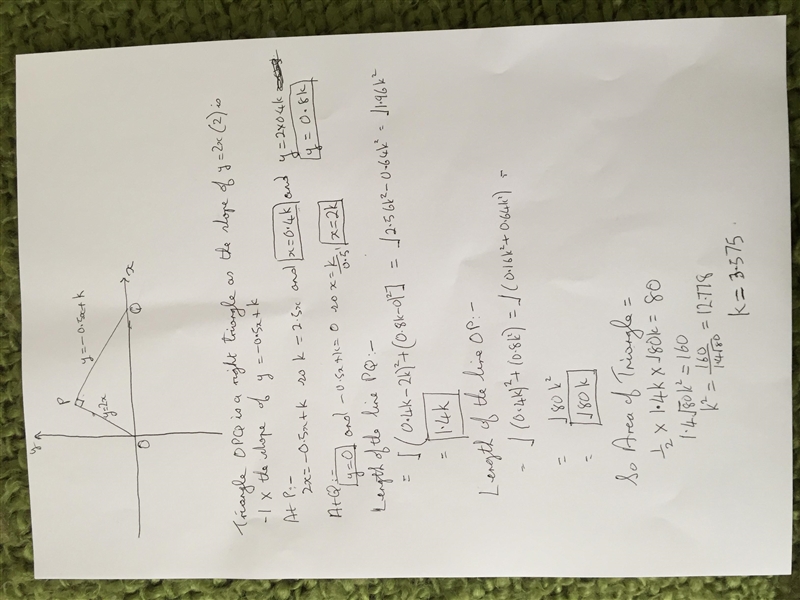 y
P
y=-0.5x+k
y=2x
O
Q
x
Triangle OPQ is a right triangle as the slope of y=2x (2) is
-1 x the slope of y = -0.5x+k
At P:-
2x = -0.5x+k so k = 2.5x and x=0.4k and y=2x0.4k
y = 0.8k
At Q:-
y=0 and -0.5x+k=0 so x=k/0.5, x=2k
Length of the line PQ:-
= √(0.4k-2k)²+(0.8k-0)²] = √2.56k²-0.64k² = √1.96k²
= 1.4k
Length of the line OP:-
= √(0.4k)²+(0.8k)² = √(0.16k²+0.64k²) =
= √80k²
= √80k
So Area of Triangle =
1/2 x 1.4k x √80k = 80
1.4√80k² = 160
k² = 160/1.4√80 = 12.778
k = 3.575.